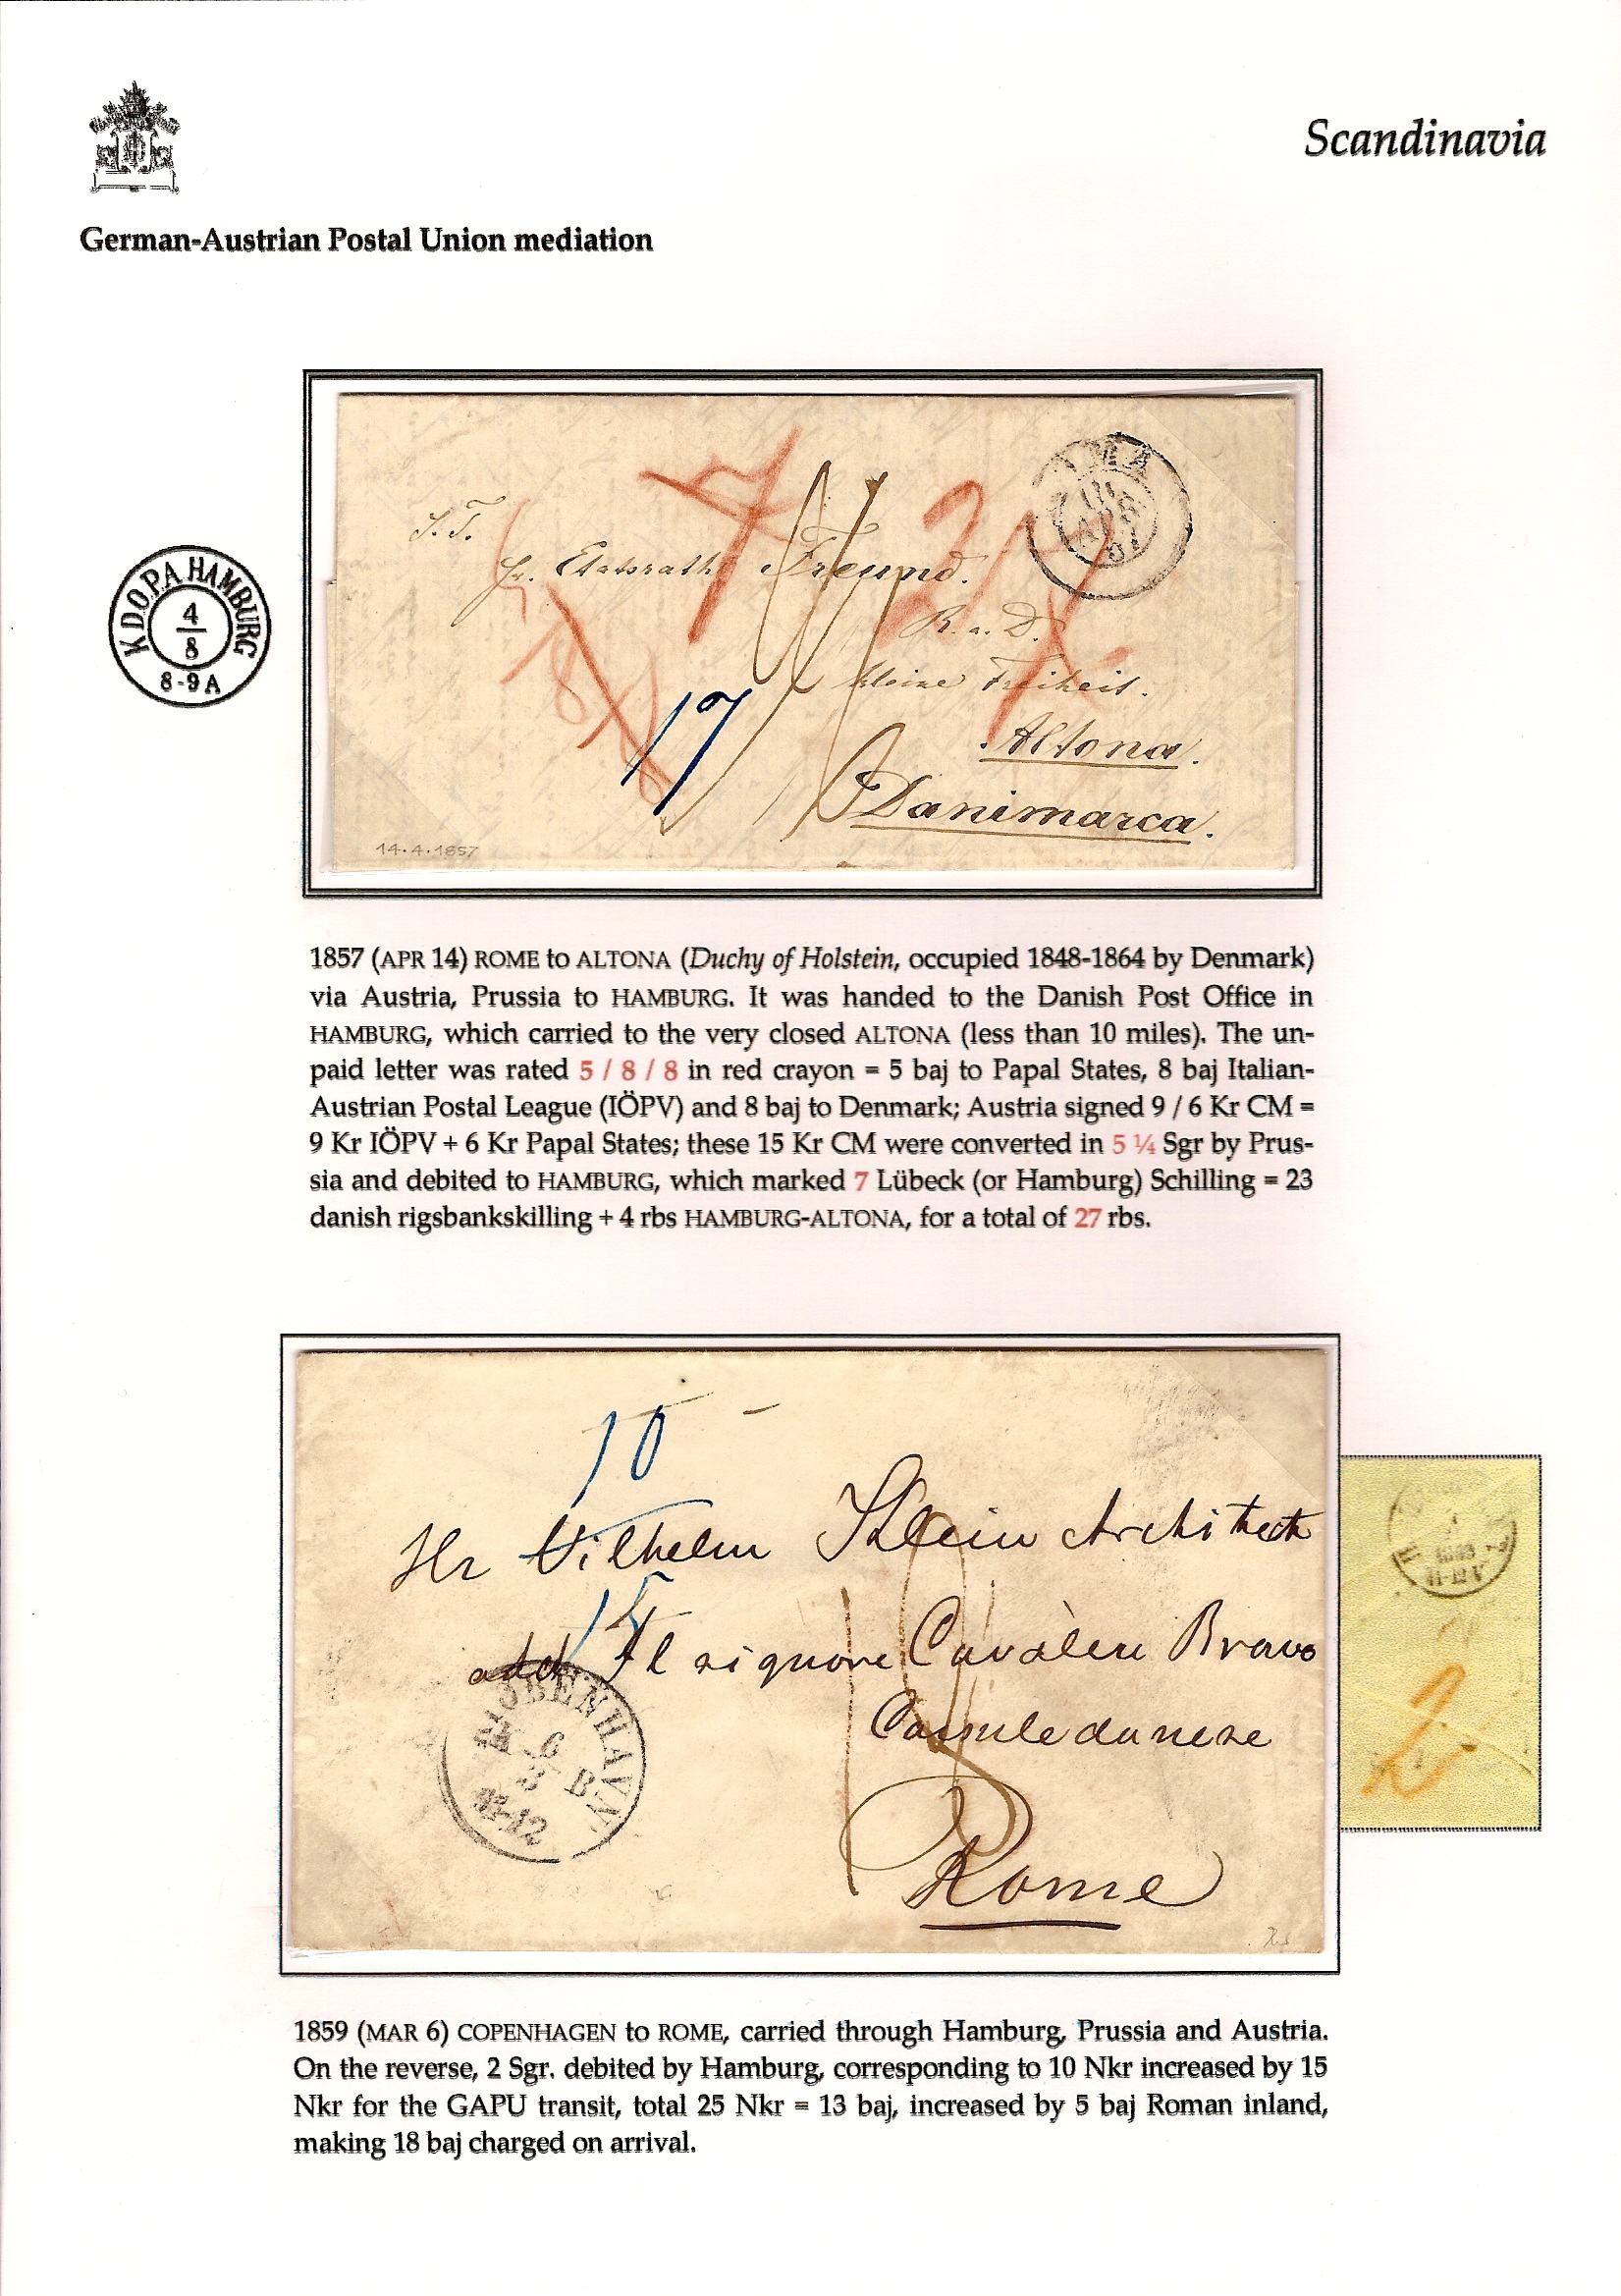 Scandinavia
German-Austrian Postal Union mediation
K.D.O.P.A HAMBURG
4
8
8-9A
Hr. Etatsrath Freund.
R. a. D.
kleine Freiheit.
Altona.
Danimarca.
17
14.4.1857
1857 (APR 14) ROME to ALTONA (Duchy of Holstein, occupied 1848-1864 by Denmark)
via Austria, Prussia to HAMBURG. It was handed to the Danish Post Office in
HAMBURG, which carried to the very closed ALTONA (less than 10 miles). The un-
paid letter was rated 5 / 8 / 8 in red crayon = 5 baj to Papal States, 8 baj Italian-
Austrian Postal League (IÖPV) and 8 baj to Denmark; Austria signed 9 / 6 Kr CM =
9 Kr IÖPV + 6 Kr Papal States; these 15 Kr CM were converted in 5 ¼ Sgr by Prus-
sia and debited to HAMBURG, which marked 7 Lübeck (or Hamburg) Schilling = 23
danish rigsbankskilling + 4 rbs HAMBURG-ALTONA, for a total of 27 rbs.
10
Hr Vilhelm Klein Architect
15
add Il signore Cavalleri Bravo
Consule danese
Rome
18
KIØBENHAVN
6
3
B
2
1859 (MAR 6) COPENHAGEN to ROME, carried through Hamburg, Prussia and Austria.
On the reverse, 2 Sgr. debited by Hamburg, corresponding to 10 Nkr increased by 15
Nkr for the GAPU transit, total 25 Nkr = 13 baj, increased by 5 baj Roman inland,
making 18 baj charged on arrival.